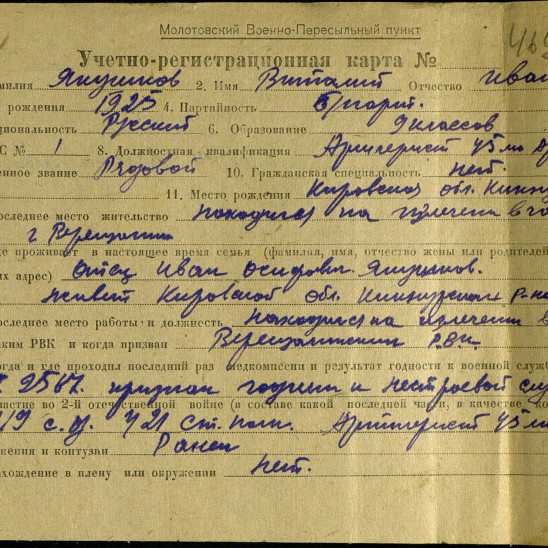 Молотовский Военно-Пересыльный пункт
Учетно-регистрационная карта №
469
амилия Якушков 2. Имя Виталий Отчество Иван
рождения 1925 4. Партийность б/парт.
циональность Русский 6. Образование 9 классов
С № 1 8. Должностная квалификация Артилерист 45 мм
енное звание Рядовой 10. Гражданская специальность нет.
11. Место рождения Кировская обл.
оследнее место жительство находился на излечени в го
г Верещагино
де проживает в настоящее время семья (фамилия, имя, отчество жены или родителей
их адрес) Отец Иван Осипович
живет Кировской обл. р-н
оследнее место работы и должность находился на излечени в
аким РВК и когда призван Верещагинским РВК.
огда и где последний раз медкомиссии и результат годности к военной служб
признан годным к нестроевой слу
астие во 2-й отечественной войне (в составе какой последней части, в качестве ко
19 с.д. 421 ст. полк. Артилерист 45 мм
нения и контузии Ранен
хождение в плену или окружении нет.